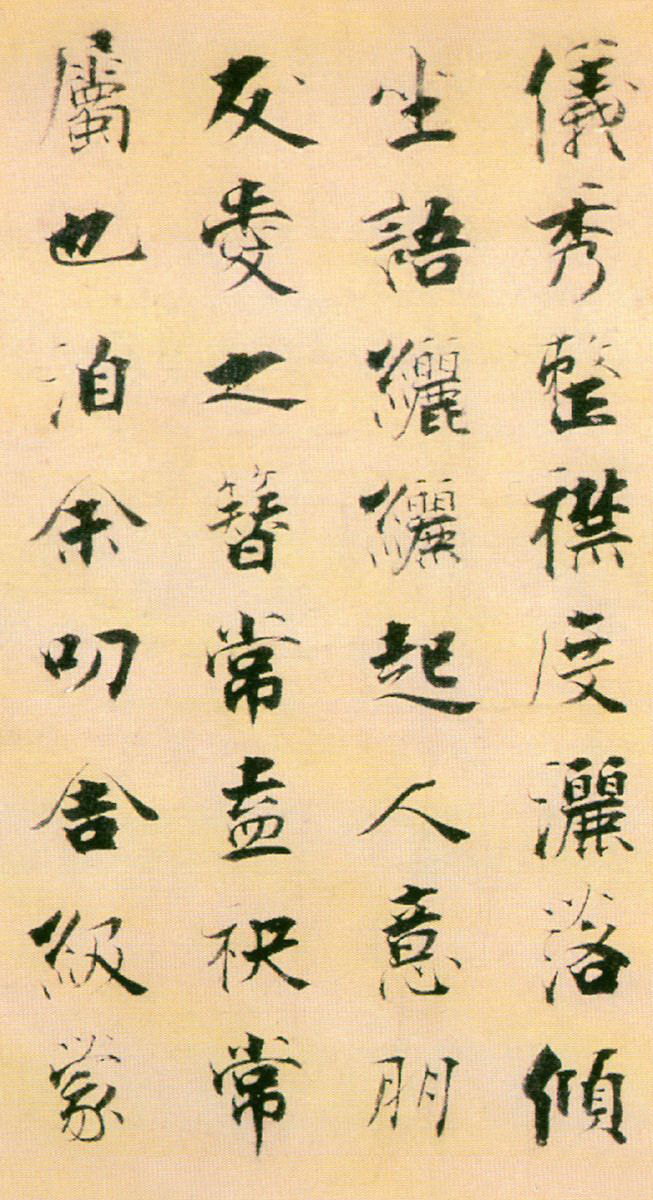 儀秀整襟度灑落傾
坐語纚纚起人意朋
友愛之簪常盍袂常
屬也洎余叨舍級蒙